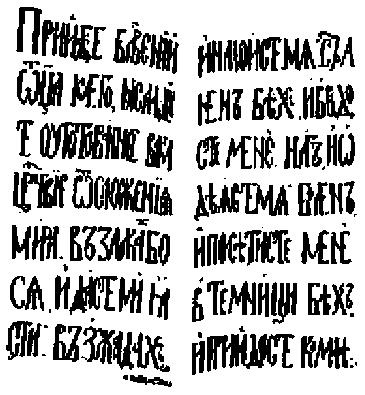 Прїидѣте бл҃гсвенїи
ѿц҃а моего, наслѣди
те оуготованное вам
црⷭтвїе ѿ сложенїѧ
мира. възалка бо
сѧ, и дасте ми ꙗ
сти. възжадахъ
и напоисте мѧ. стра
ненъ бѣхъ, и въведо
сте мене. нагъ, и ѡ
дѣѧсте мѧ. боленъ
и посѣтисте мене
в темници бѣхъ
и прїидосте ко мнѣ.